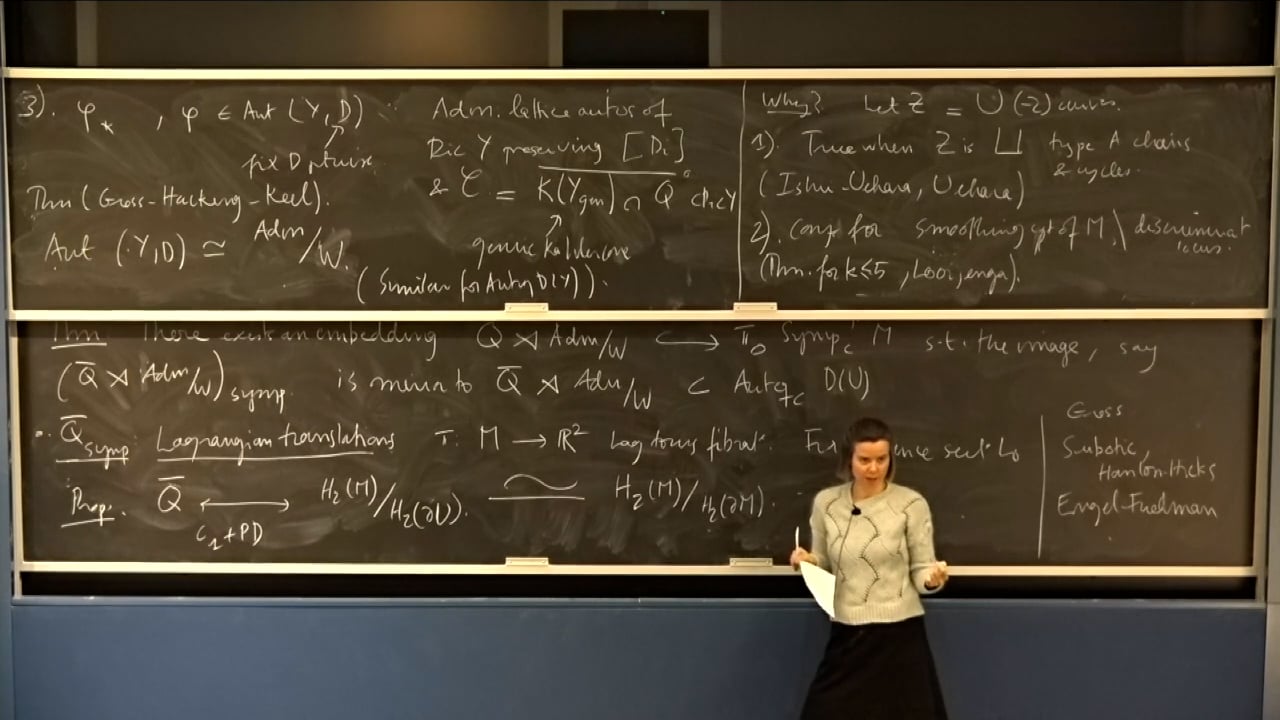 3). φ_* , φ ∈ Aut (Y, D)
fix D ptwise.
Thm (Gross-Hacking-Keel).
Aut (Y,D) ≃ Adm/W.
Adm. lattice autos of
Pic Y preserving [Di]
& C = K(Ygen) ∩ Q
generic Kähler cone
(Similar for Auteq D(Y)).
Why? Let Z = ∪ (-2) curves.
1). True when Z is ⊔ type A chains
& cycles.
(Ishii-Uehara, Uehara)
2). conj for smoothing cpt of M \ discriminant
locus.
(Thm. for k≤5, Looijenga).
Thm There exists an embedding Q̄ ⋊ Adm/W ↪ π₀ Symp_c M s.t. the image, say
(Q̄ ⋊ Adm/W)symp. is mirror to Q̄ ⋊ Adm/W ⊂ Auteq_c D(U)
• Q̄symp: Lagrangian translations π: M → ℝ² Lag torus fibrat.
Prop. Q̄ ⟷ H₂(M)/H₂(∂U). ≃ H₂(M)/H₂(∂M).
c₁+PD
Gross
Subotic,
Hanlon-Hicks
Engel-Friedman